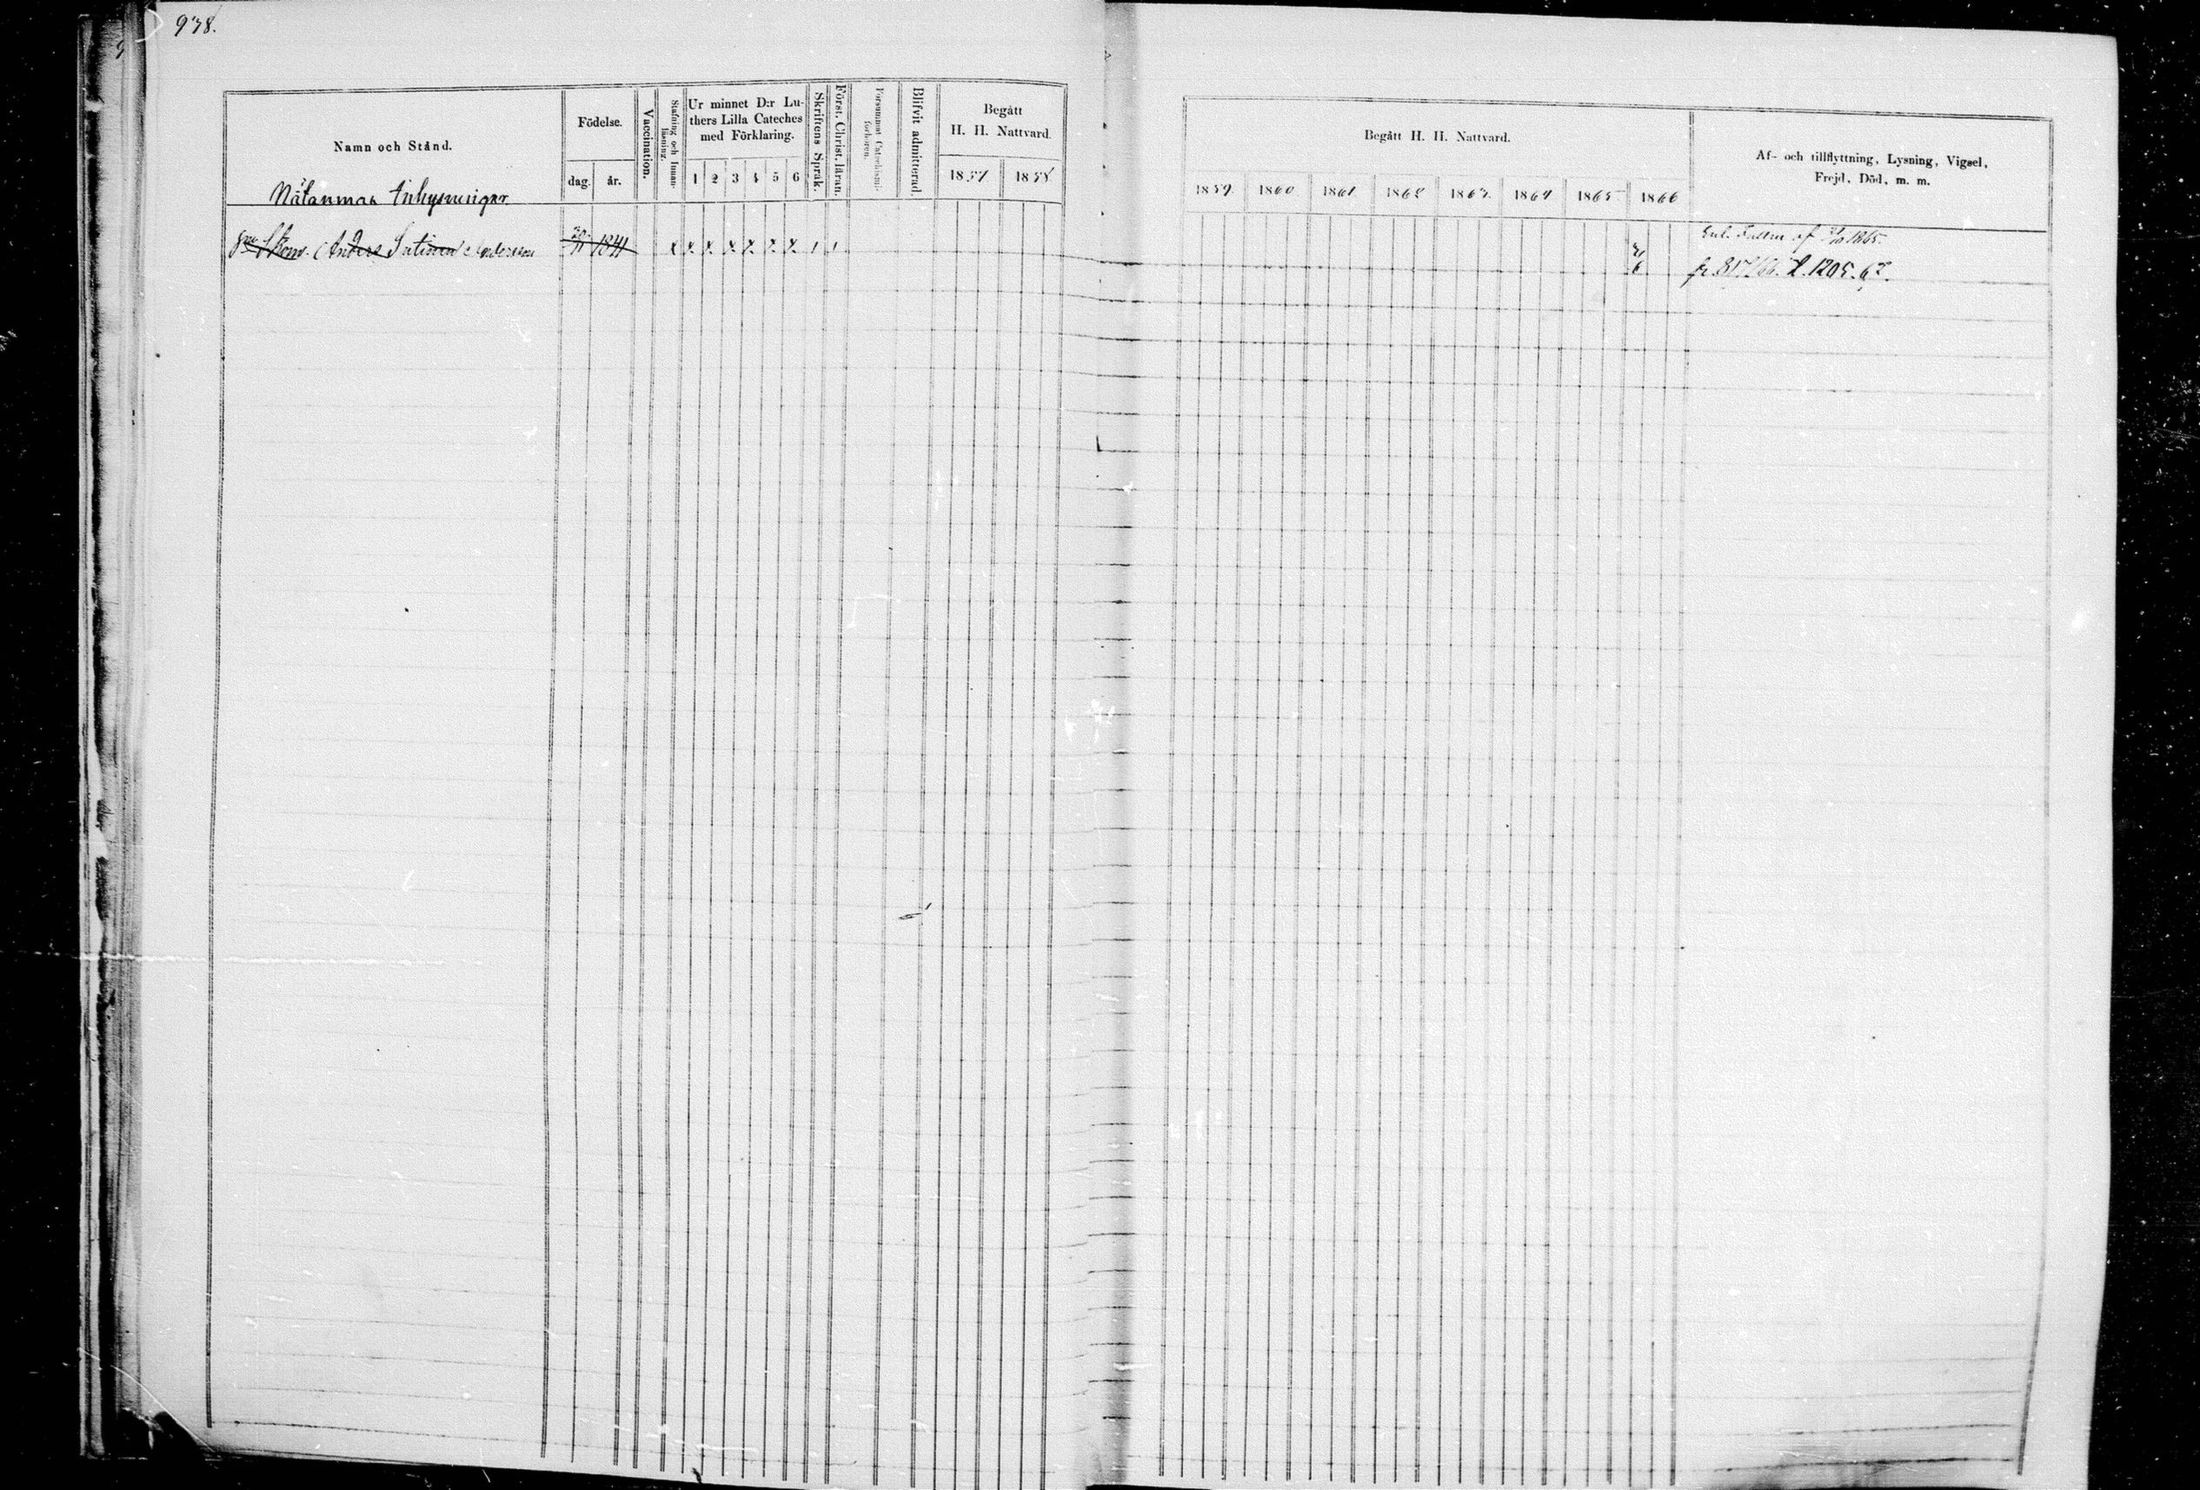 938.
Namn och Stånd.
Födelse.
dag. år.
Vaccination.
Stafning och Innanläsning.
Ur minnet D:r Lu-
thers Lilla Cateches
med Förklaring.
1 2 3 4 5 6
Skriftens Språk.
Först. Christ. läran.
Försummat Catechismi-
förhören.
Blifvit admitterad.
Begått
H. H. Nattvard.
1857 1858
Inhysningar
Anders Andersson 1841 x x x x x x x
Begått H. H. Nattvard.
1859. 1860 1861 1862 1863. 1864 1865 1866
Af- och tillflyttning, Lysning, Vigsel,
Frejd, Död, m. m.
1865.
fr 817/66. 1205. 67.